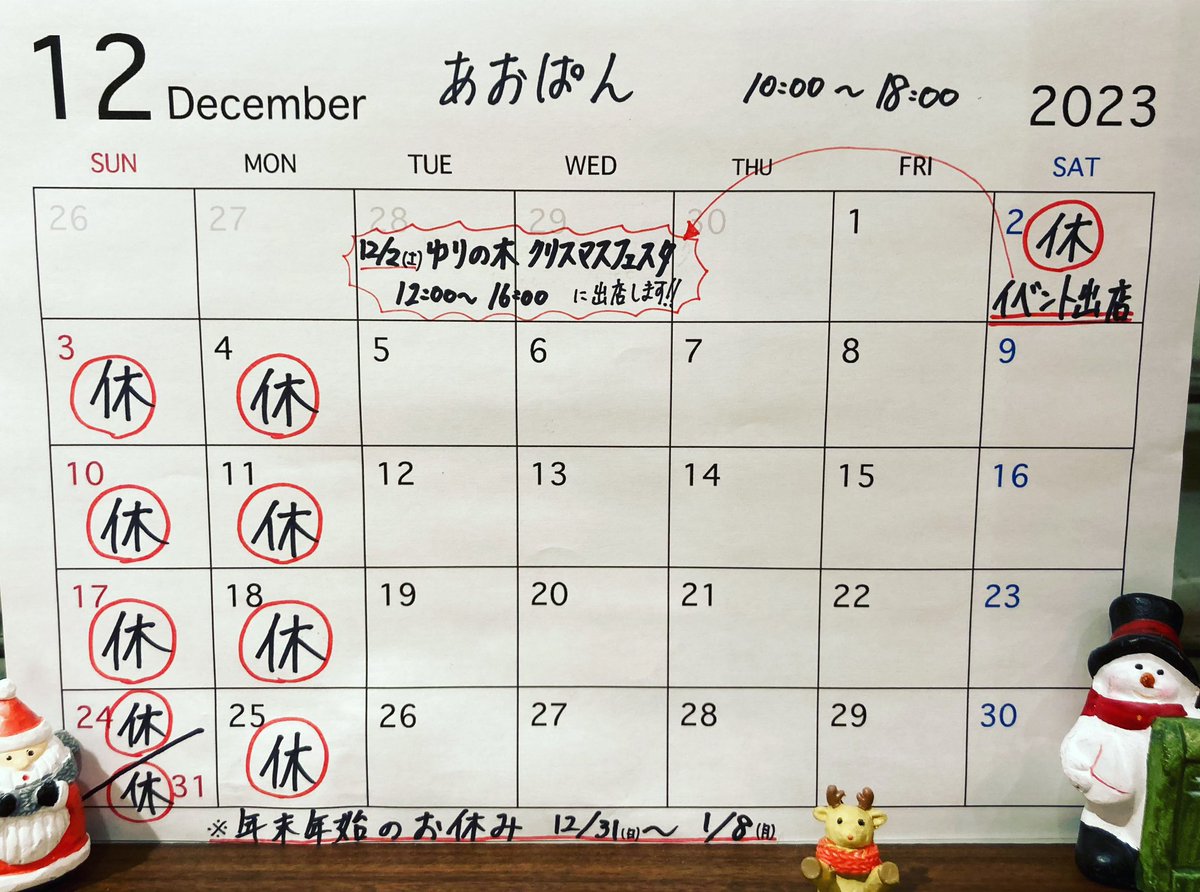 12 December あおぱん 10:00〜18:00 2023
SUN MON TUE WED THU FRI SAT
26 27 28 29 30 1 2 休
12/2(土)ゆりの木 クリスマスフェスタ
12:00〜16:00 に出店します!!
イベント出店
3 休 4 休 5 6 7 8 9
10 休 11 休 12 13 14 15 16
17 休 18 休 19 20 21 22 23
24 休 25 休 26 27 28 29 30
休 31
※年末年始のお休み 12/31(日)〜 1/8(月)